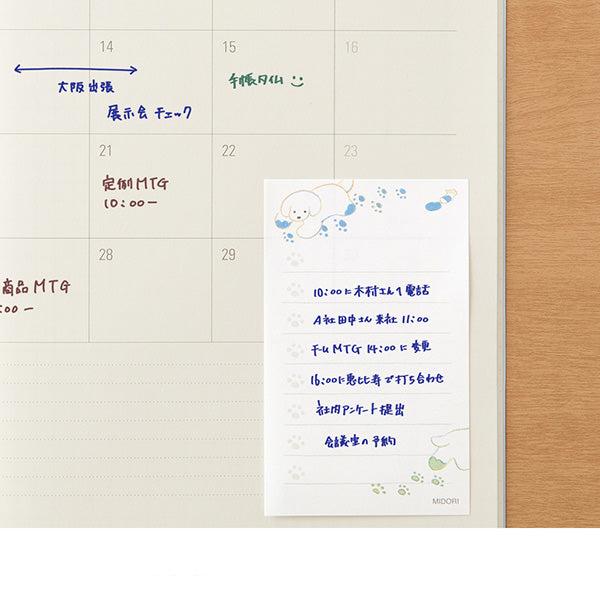 14
15
16
大阪出張
手帳タイム
展示会チェック
21
22
23
定例MTG
10:00ー
28
29
商品MTG
:00ー
10:00に木村さんへ電話
A社田中さん来社 11:00
チームMTG 14:00に変更
16:00に恵比寿で打ち合わせ
社内アンケート提出
会議室の予約
MIDORI